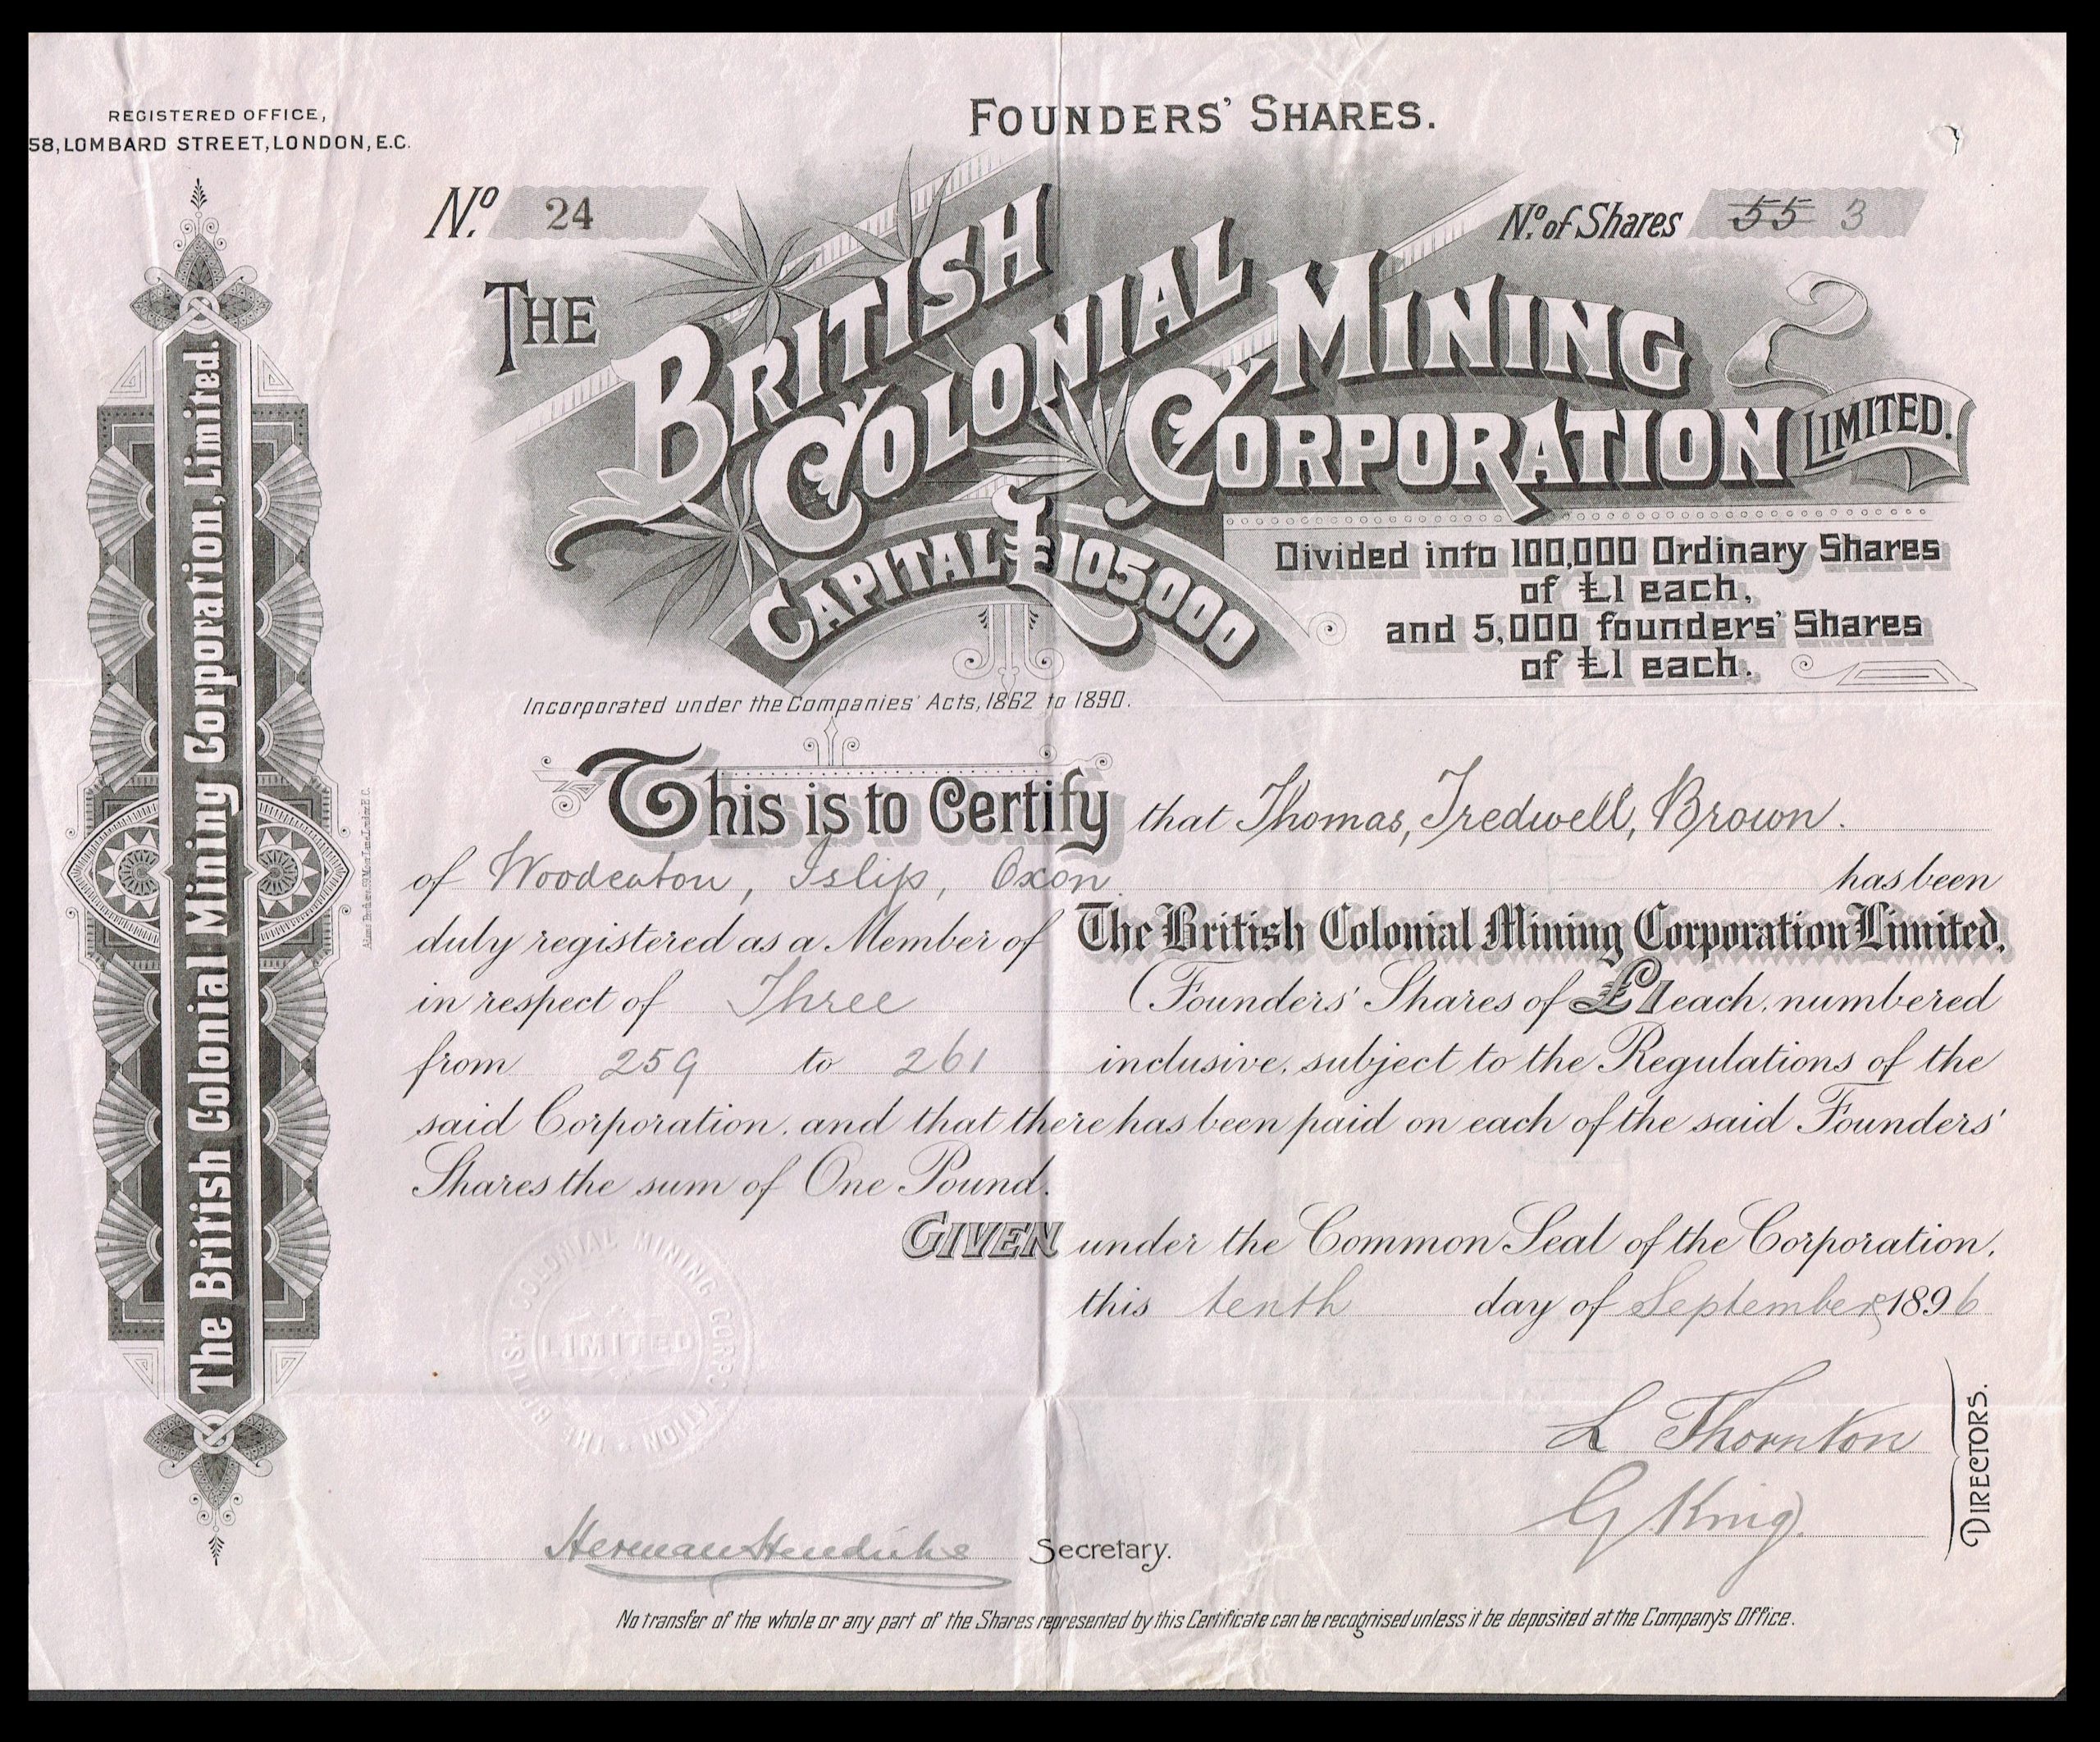 REGISTERED OFFICE,
58, LOMBARD STREET, LONDON, E.C.
FOUNDERS' SHARES.
No. 24
No. of Shares 55 3
THE BRITISH COLONIAL MINING CORPORATION LIMITED.
CAPITAL £105,000
Divided into 100,000 Ordinary Shares
of £1 each,
and 5,000 founders' Shares
of £1 each.
Incorporated under the Companies' Acts, 1862 to 1890.
This is to Certify that Thomas, Tredwell, Brown.
of Woodeaton, Islip, Oxon. has been
duly registered as a Member of The British Colonial Mining Corporation Limited,
in respect of Three (Founders' Shares of £1 each, numbered
from 259 to 261 inclusive, subject to the Regulations of the
said Corporation, and that there has been paid on each of the said Founders'
Shares the sum of One Pound.
GIVEN under the Common Seal of the Corporation,
this tenth day of September 1896
THE BRITISH COLONIAL MINING CORPORATION
LIMITED
L Thornton
G King
DIRECTORS.
Herman Secretary.
No transfer of the whole or any part of the Shares represented by this Certificate can be recognised unless it be deposited at the Company's Office.
The British Colonial Mining Corporation, Limited.